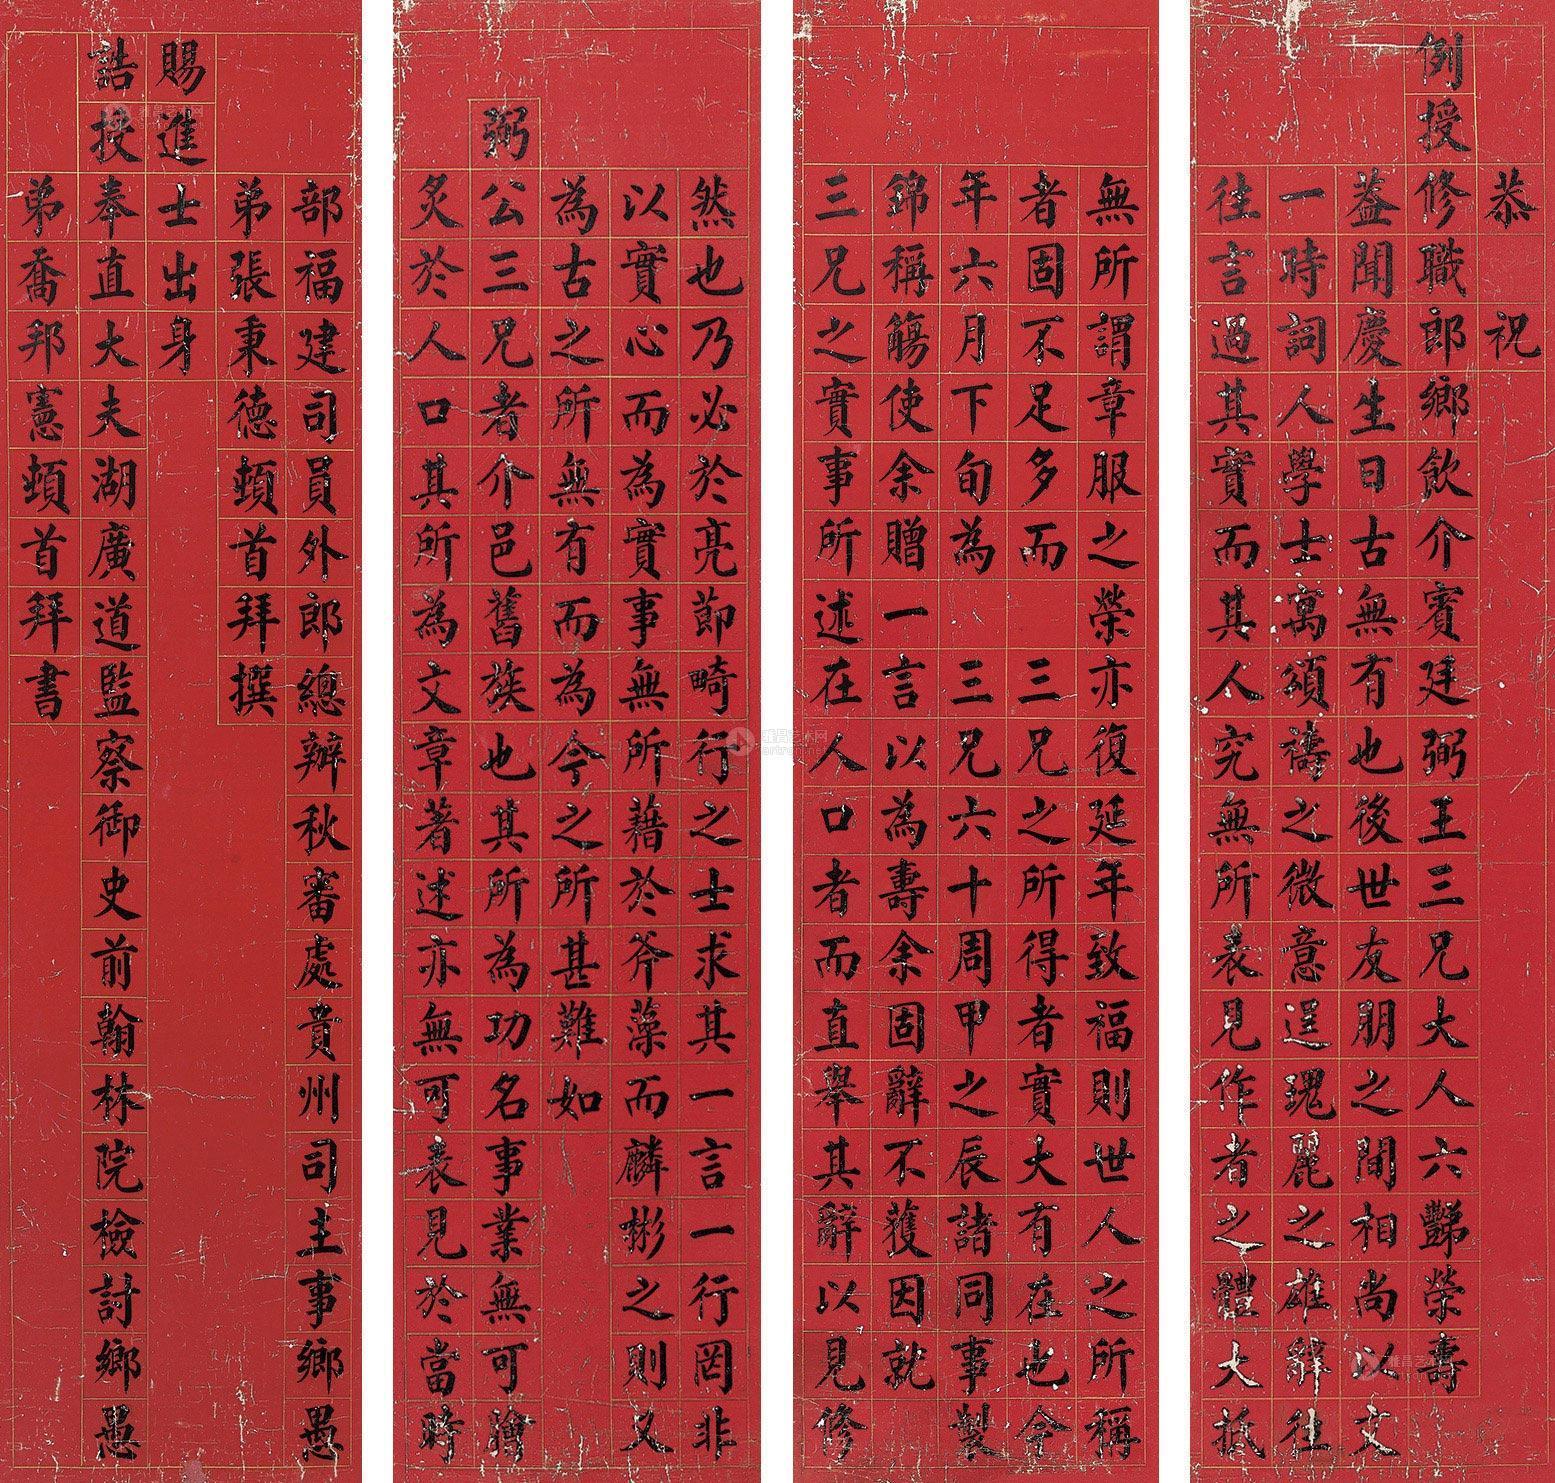 恭祝
例授修職郎鄉飲介賓廷弼王三兄大人六豑榮壽
葢聞慶生日古無有也後世友朋之間相尚以文
一時詞人學士寓頌禱之微意逞瑰麗之雄辭往
往言過其實而其人究無所表見作者之體大抵
無所謂章服之榮亦復延年致福則世人之所稱
者固不足多而三兄之所得者實大有在也今
年六月下旬為三兄六十周甲之辰諸同事製
錦稱觴使余贈一言以為壽余固辭不獲因就
三兄之實事所述在人口者而直舉其辭以見修
然也乃必於亮節畸行之士求其一言一行罔非
以實心而為實事無所藉於斧藻而麟彬之則又
為古之所無有而為今之所甚難如
弼公三兄者介邑舊族也其所為功名事業無可膾
炙於人口其所為文章著述亦無可表見於當時
部福建司員外郎總辦秋審處貴州司主事鄉愚
弟張秉德頓首拜撰
賜進士出身
誥授奉直大夫湖廣道監察御史前翰林院檢討鄉愚
弟喬邦憲頓首拜書
雅昌艺术网
artron.net